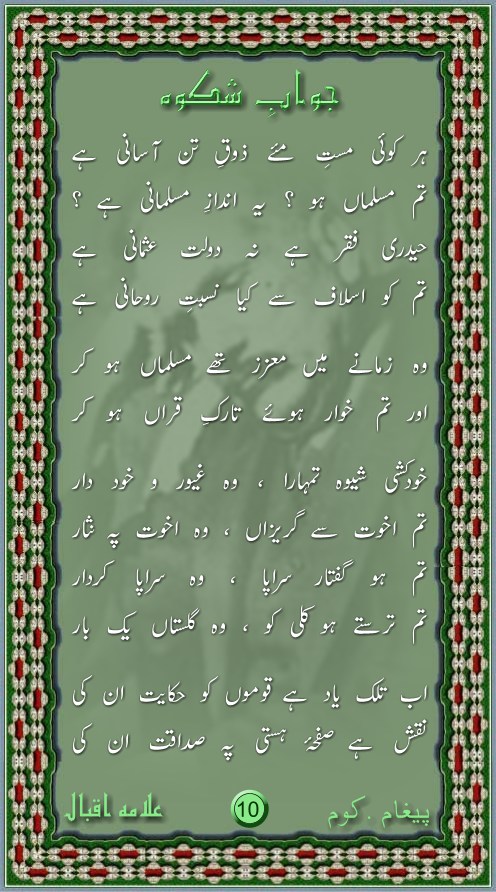 جوابِ شکوہ
ہر کوئی مستِ مئے ذوقِ تن آسانی ہے
تم مسلماں ہو ؟ یہ اندازِ مسلمانی ہے ؟
حیدری فقر ہے نہ دولت عثمانی ہے
تم کو اسلاف سے کیا نسبتِ روحانی ہے
وہ زمانے میں معزز تھے مسلماں ہو کر
اور تم خوار ہوئے تارکِ قراں ہو کر
خودکشی شیوہ تمہارا ، وہ غیور و خود دار
تم اخوت سے گریزاں ، وہ اخوت پہ نثار
تم ہو گفتار سراپا ، وہ سراپا کردار
تم ترستے ہو کلی کو ، وہ گلستاں یک بار
اب تلک یاد ہے قوموں کو حکایت ان کی
نقش ہے صفحۂ ہستی پہ صداقت ان کی
پیغام . کوم 10 علامہ اقبال